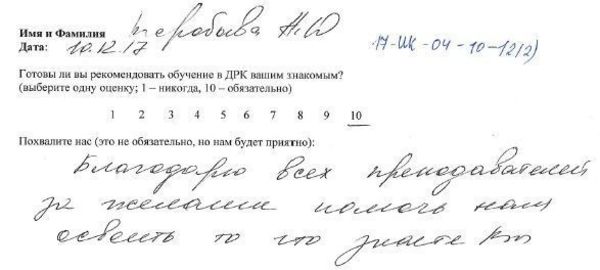 Имя и Фамилия Н.Ю
Дата: 10.12.17 17-ИК-04-10-12(2)
Готовы ли вы рекомендовать обучение в ДРК вашим знакомым?
(выберите одну оценку; 1 – никогда, 10 – обязательно)
1 2 3 4 5 6 7 8 9 10
Похвалите нас (это не обязательно, но нам будет приятно):
Благодарю всех преподавателей
за желание помочь нам
освоить то что знаете